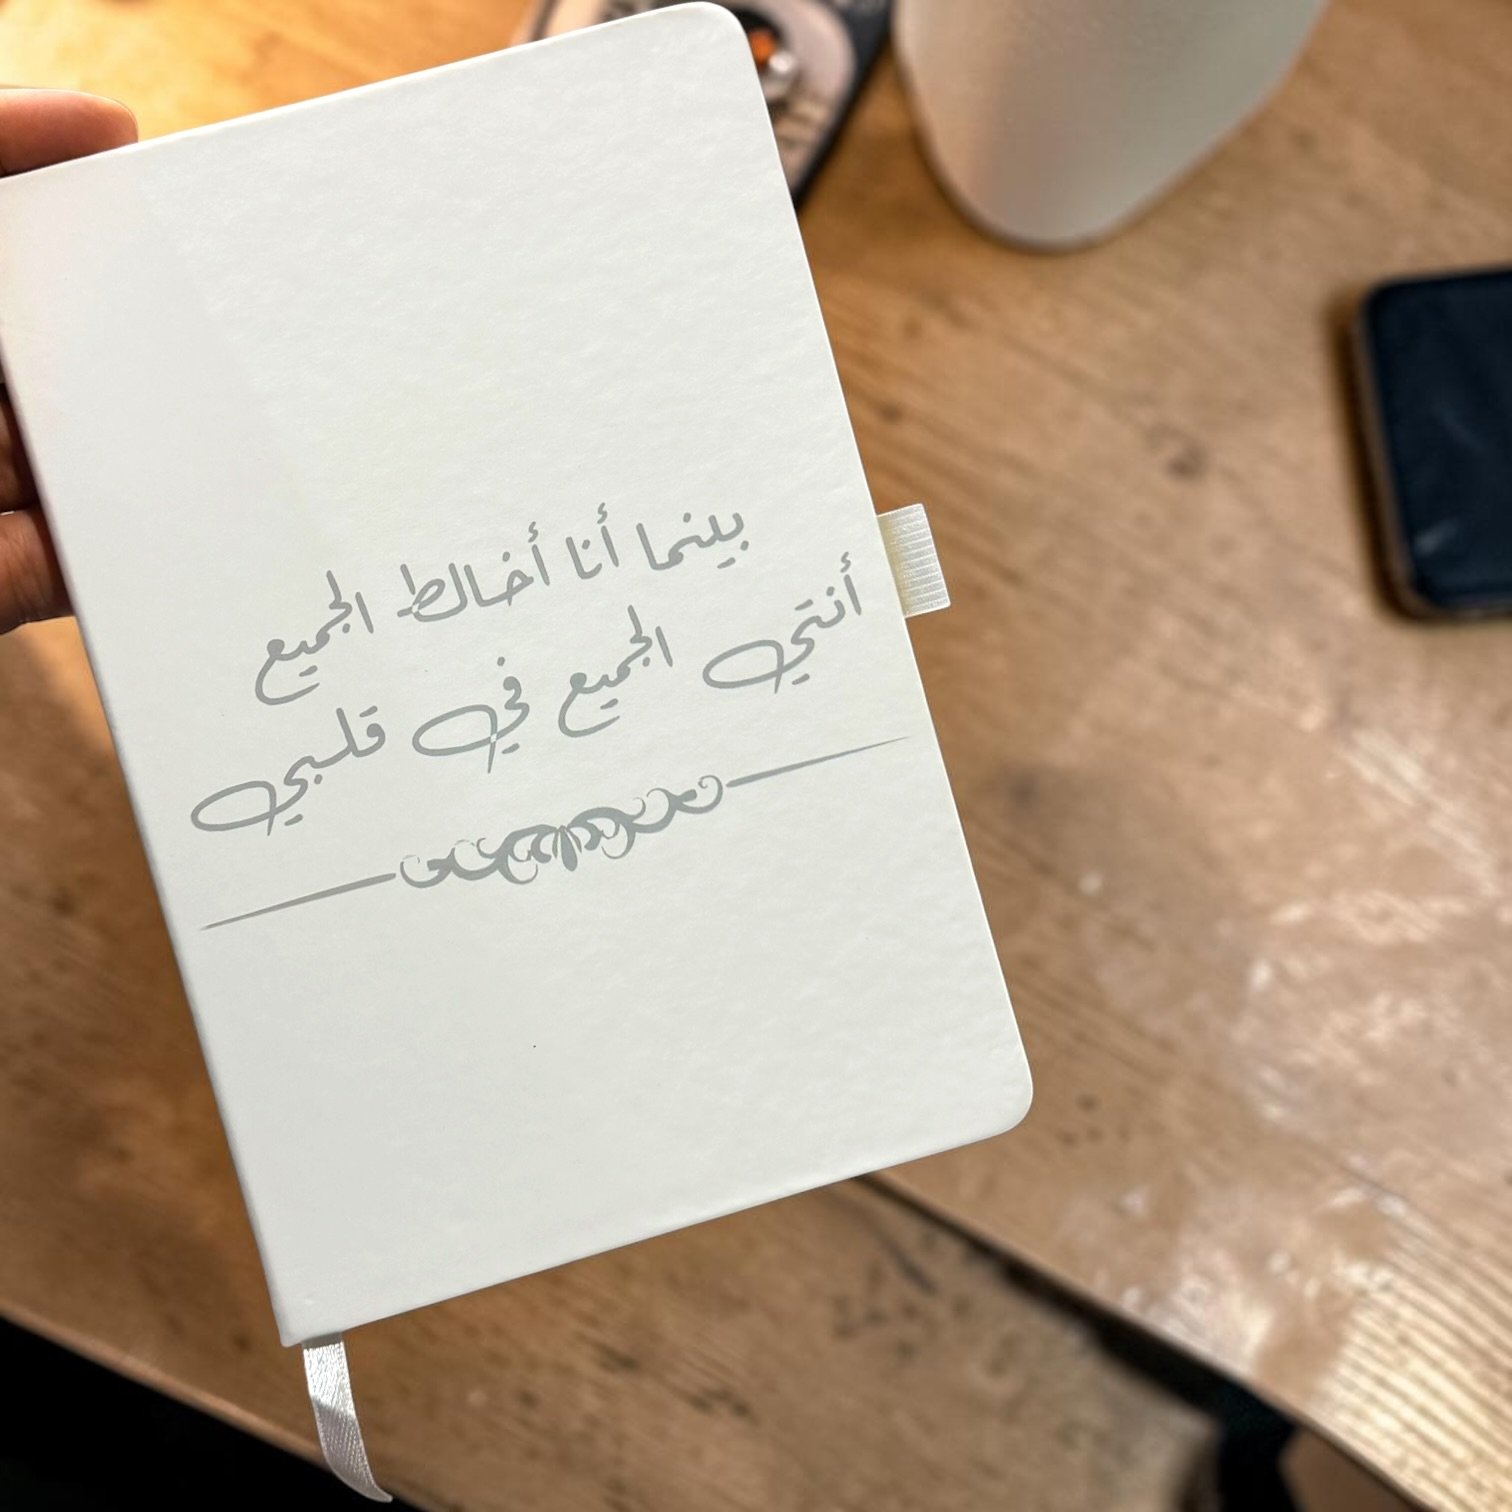 بينما أنا أخالط الجميع
أنتي الجميع في قلبي